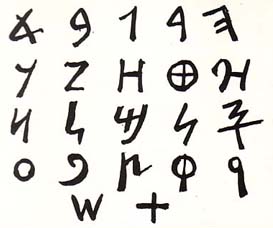 𐤀 𐤁 𐤂 𐤃 𐤄
𐤅 𐤆 𐤇 𐤈 𐤉
𐤊 𐤋 𐤌 𐤍 𐤎
𐤏 𐤐 𐤑 𐤒 𐤓
𐤔 𐤕